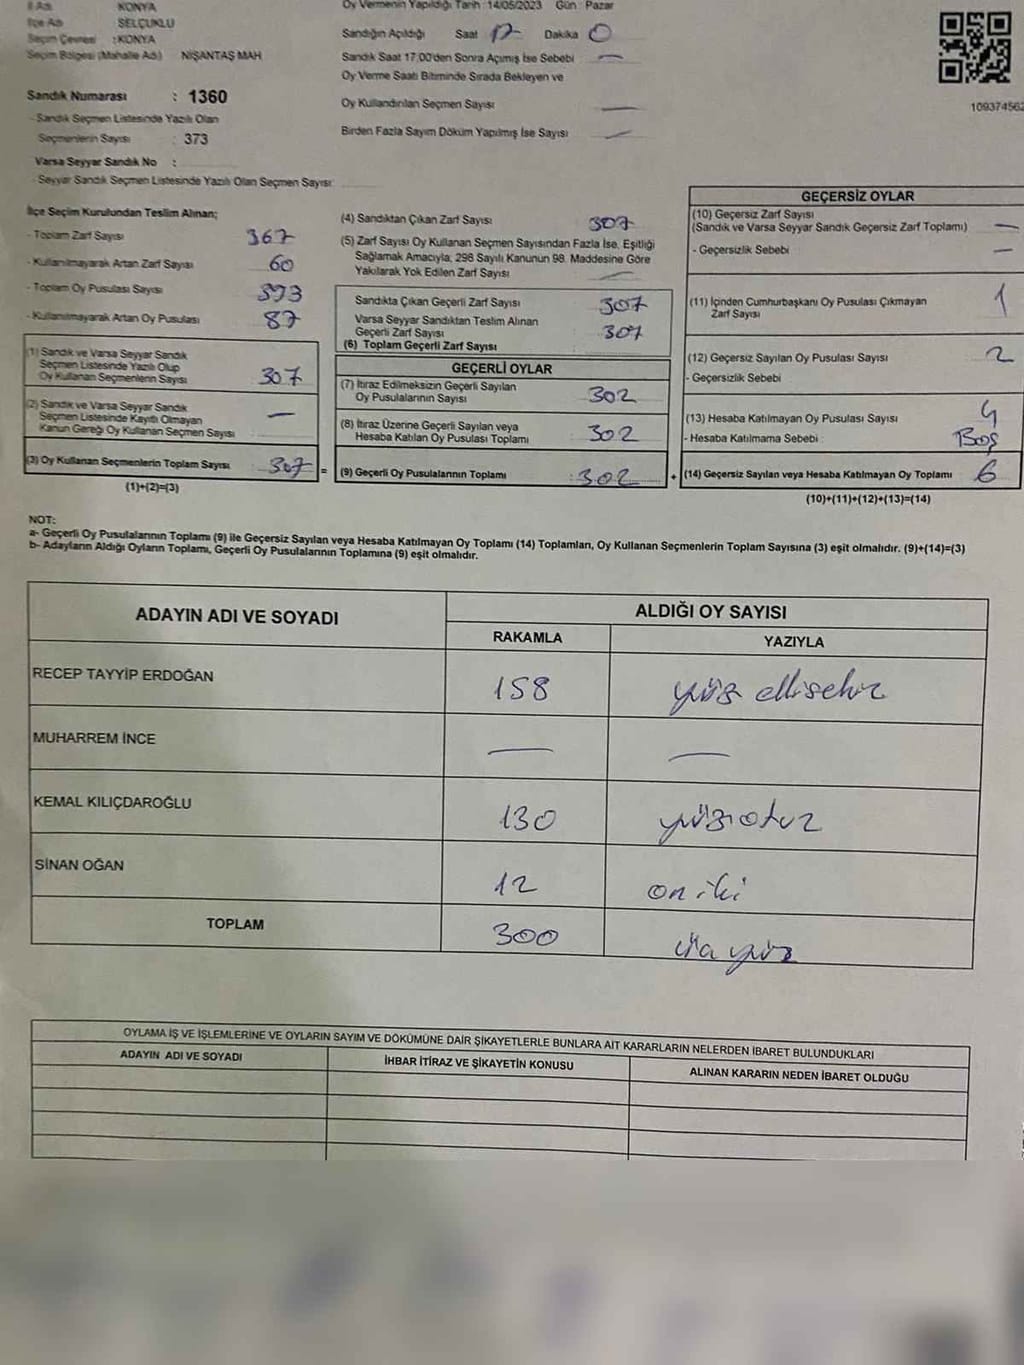 İl Adı KONYA
İlçe Adı SELÇUKLU
Seçim Çevresi : KONYA
Seçim Bölgesi (Mahalle Adı) NİŞANTAŞ MAH
Sandık Numarası : 1360
- Sandık Seçmen Listesinde Yazılı Olan
Seçmenlerin Sayısı : 373
Varsa Seyyar Sandık No :
- Seyyar Sandık Seçmen Listesinde Yazılı Olan Seçmen Sayısı:
Oy Vermenin Yapıldığı Tarih : 14/05/2023 Gün : Pazar
Sandığın Açıldığı Saat 17 Dakika 0
Sandık Saat 17:00'den Sonra Açımış İse Sebebi : —
Oy Verme Saati Bitiminde Sırada Bekleyen ve
Oy Kullandırılan Seçmen Sayısı —
Birden Fazla Sayım Döküm Yapılmış İse Sayısı —
109374562
İlçe Seçim Kurulundan Teslim Alınan;
- Toplam Zarf Sayısı 367
- Kullanılmayarak Artan Zarf Sayısı 60
- Toplam Oy Pusulası Sayısı 393
- Kullanılmayarak Artan Oy Pusulası 87
(1) Sandık ve Varsa Seyyar Sandık
Seçmen Listesinde Yazılı Olup
Oy Kullanan Seçmenlerin Sayısı 307
(2) Sandık ve Varsa Seyyar Sandık
Seçmen Listesinde Kayıtlı Olmayan
Kanun Gereği Oy Kullanan Seçmen Sayısı : —
(3) Oy Kullanan Seçmenlerin Toplam Sayısı : 307 =
(1)+(2)=(3)
(4) Sandıktan Çıkan Zarf Sayısı 307
(5) Zarf Sayısı Oy Kullanan Seçmen Sayısından Fazla İse, Eşitliği
Sağlamak Amacıyla, 298 Sayılı Kanunun 98. Maddesine Göre
Yakılarak Yok Edilen Zarf Sayısı —
Sandıkta Çıkan Geçerli Zarf Sayısı 307
Varsa Seyyar Sandıktan Teslim Alınan
Geçerli Zarf Sayısı 307
(6) Toplam Geçerli Zarf Sayısı
GEÇERLİ OYLAR
(7) İtiraz Edilmeksizin Geçerli Sayılan
Oy Pusulalarının Sayısı 302
(8) İtiraz Üzerine Geçerli Sayılan veya
Hesaba Katılan Oy Pusulası Toplamı 302
(9) Geçerli Oy Pusulalarının Toplamı : 302 +
GEÇERSİZ OYLAR
(10) Geçersiz Zarf Sayısı
(Sandık ve Varsa Seyyar Sandık Geçersiz Zarf Toplamı) —
- Geçersizlik Sebebi : —
(11) İçinden Cumhurbaşkanı Oy Pusulası Çıkmayan
Zarf Sayısı 1
(12) Geçersiz Sayılan Oy Pusulası Sayısı 2
- Geçersizlik Sebebi
(13) Hesaba Katılmayan Oy Pusulası Sayısı 4
- Hesaba Katılmama Sebebi : Boş
(14) Geçersiz Sayılan veya Hesaba Katılmayan Oy Toplamı 6
(10)+(11)+(12)+(13)=(14)
NOT:
a- Geçerli Oy Pusulalarının Toplamı (9) ile Geçersiz Sayılan veya Hesaba Katılmayan Oy Toplamı (14) Toplamları, Oy Kullanan Seçmenlerin Toplam Sayısına (3) eşit olmalıdır. (9)+(14)=(3)
b- Adayların Aldığı Oyların Toplamı, Geçerli Oy Pusulalarının Toplamına (9) eşit olmalıdır.
ADAYIN ADI VE SOYADI ALDIĞI OY SAYISI
RAKAMLA YAZIYLA
RECEP TAYYİP ERDOĞAN 158 yüz ellisekiz
MUHARREM İNCE — —
KEMAL KILIÇDAROĞLU 130 yüzotuz
SİNAN OĞAN 12 on iki
TOPLAM 300 üç yüz
OYLAMA İŞ VE İŞLEMLERİNE VE OYLARIN SAYIM VE DÖKÜMÜNE DAİR ŞİKAYETLERLE BUNLARA AİT KARARLARIN NELERDEN İBARET BULUNDUKLARI
ADAYIN ADI VE SOYADI İHBAR İTİRAZ VE ŞİKAYETİN KONUSU ALINAN KARARIN NEDEN İBARET OLDUĞU